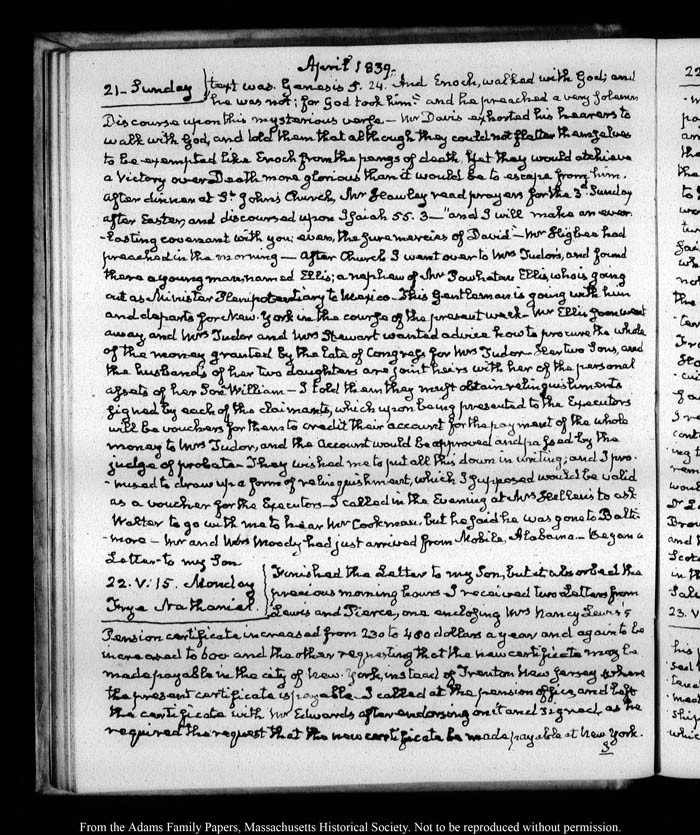 April 1839.
21 - Sunday text was. Genesis 5. 24. And Enoch, walked with God; and
he was not; for God took him." and he preached a very solemn
Discourse upon this mysterious verse — Mr Davis exhorted his hearers to
walk with God, and told them that although they could not flatter themselves
to be exempted like Enoch from the pangs of death. Yet they would atchieve
a Victory over Death more glorious than it would be to escape from him.
After dinner at St. John's Church, Mr Hawley read prayers for the 3d. Sunday
after Easter, and discoursed upon Isaiah 55. 3 — "and I will make an ever-
-lasting covenant with you; even, the sure mercies of David" — Mr Higbee had
preached in the morning — After Church I went over to Mrs Tudor's, and found
there a young man, named Ellis; a nephew of Mr Powhatan Ellis, who is going
out as Minister Plenipotentiary to Mexico. This Gentleman is going with him
and departs for New York in the course of the present week - Mr Ellis soon went
away and Mrs Tudor and Mrs Stewart wanted advice how to procure the whole
of the money granted by the late of Congress for Mrs Tudor. Her two Sons, and
the husbands of her two daughters are joint heirs with her of the personal
assets of her Son William — I told them they must obtain relinquishments
signed by each of the claimants, which upon being presented to the Executors
will be vouchers for them to credit their account for the payment of the whole
money to Mrs Tudor, and the account would be approved and passed by the
judge of probate - They wished me to put all this down in writing; and I pro-
-mised to draw up a form of relinquishment, which I supposed would be valid
as a voucher for the Executors - I called in the Evening at Mrs Hellen's to ask
Walter to go with me to hear Mr Cookman, but he said he was gone to Balti-
-more — Mr and Mrs Moody had just arrived from Mobile, Alabama — Began a
Letter to my Son
22. V: 15. Monday Finished the Letter to my Son, but it absorbed the
Frye Nathaniel. precious morning hours I received two Letters from
Lewis and Pierce, one enclosing Mrs Nancy Lewis's
Pension certificate increased from 230 to 480 dollars a year and again to be
increased to 600 and the other requesting that the new certificate may be
made payable in the city of New York, instead of Trenton New Jersey where
the present certificate is payable. I called at the pension office, and left
the certificate with Mr Edwards after endorsing on it and signed, as he
required the request that the new certificate be made payable at New York.
3
22
23. V
From the Adams Family Papers, Massachusetts Historical Society. Not to be reproduced without permission.